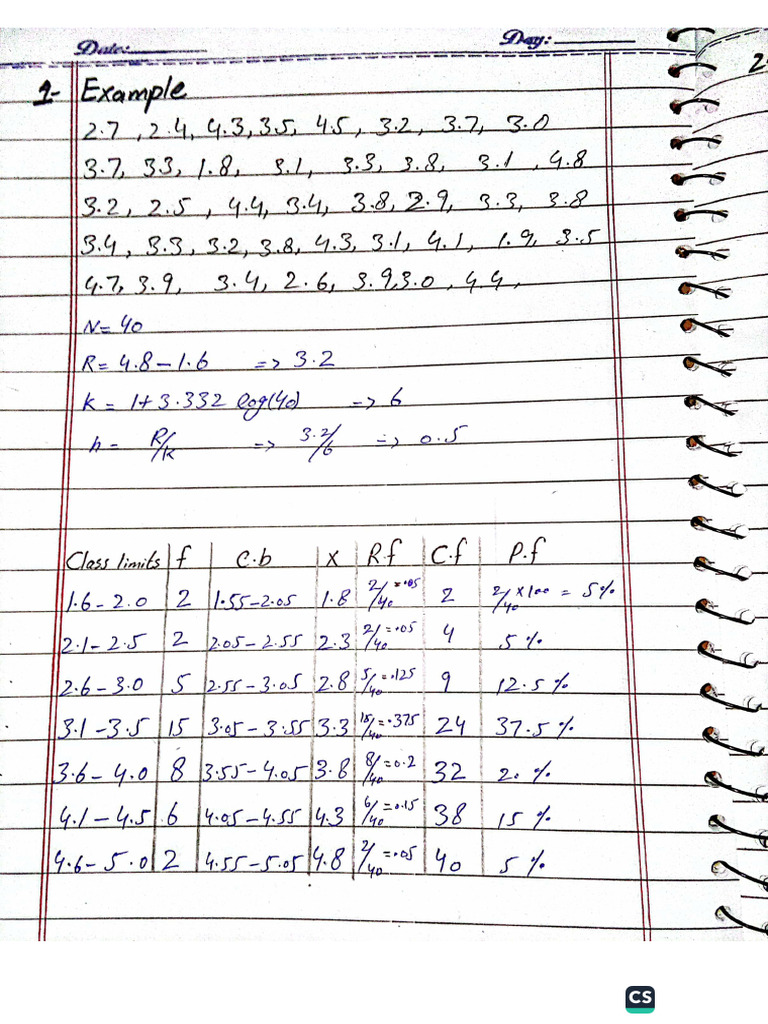 Date: Day:
2
1- Example
2.7, 2.4, 4.3, 3.5, 4.5, 3.2, 3.7, 3.0
3.7, 33, 1.8, 3.1, 3.3, 3.8, 3.1, 4.8
3.2, 2.5, 4.4, 3.4, 3.8, 2.9, 3.3, 3.8
3.4, 3.3, 3.2, 3.8, 4.3, 3.1, 4.1, 1.9, 3.5
4.7, 3.9, 3.4, 2.6, 3.9, 3.0, 4.4,
N= 40
R= 4.8 – 1.6 => 3.2
K = 1+ 3.332 log(40) => 6
h = R/K => 3.2/6 => 0.5
Class limits f C.b X R.f C.f P.f
1.6 - 2.0 2 1.55 - 2.05 1.8 2/40 = .05 2 2/40 × 100 = 5%
2.1 - 2.5 2 2.05 - 2.55 2.3 2/40 = .05 4 5%
2.6 - 3.0 5 2.55 - 3.05 2.8 5/40 = .125 9 12.5%
3.1 - 3.5 15 3.05 - 3.55 3.3 15/40 = .375 24 37.5%
3.6 - 4.0 8 3.55 - 4.05 3.8 8/40 = 0.2 32 2. %
4.1 - 4.5 6 4.05 - 4.55 4.3 6/40 = 0.15 38 15%
4.6 - 5.0 2 4.55 - 5.05 4.8 2/40 = .05 40 5%
CS